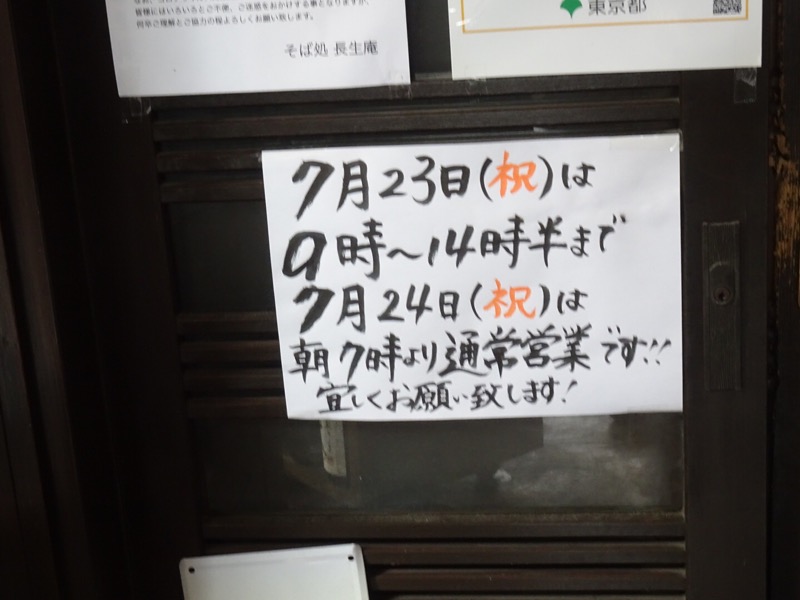 皆様にはいろいろとご不便、ご迷惑をおかけする事となりますが、
何卒ご理解とご協力の程よろしくお願い致します。
そば処 長生庵
東京都
7月23日(祝)は
9時〜14時半まで
7月24日(祝)は
朝7時より通常営業です!!
宜しくお願い致します!